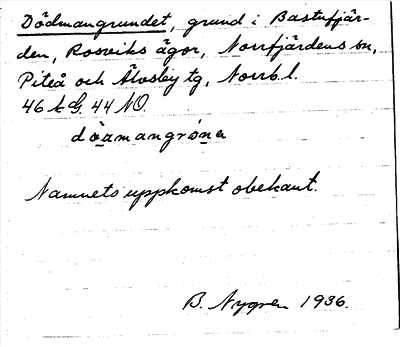 Dödmangrundet, grund i Bastufjär-
den, Rosviks ägor, Norrfjärdens sn,
Piteå och Älvsby tg, Norrb. l.
46 44 NO.
dömangrøna
Namnets uppkomst obekant.
B. Nygren 1936.